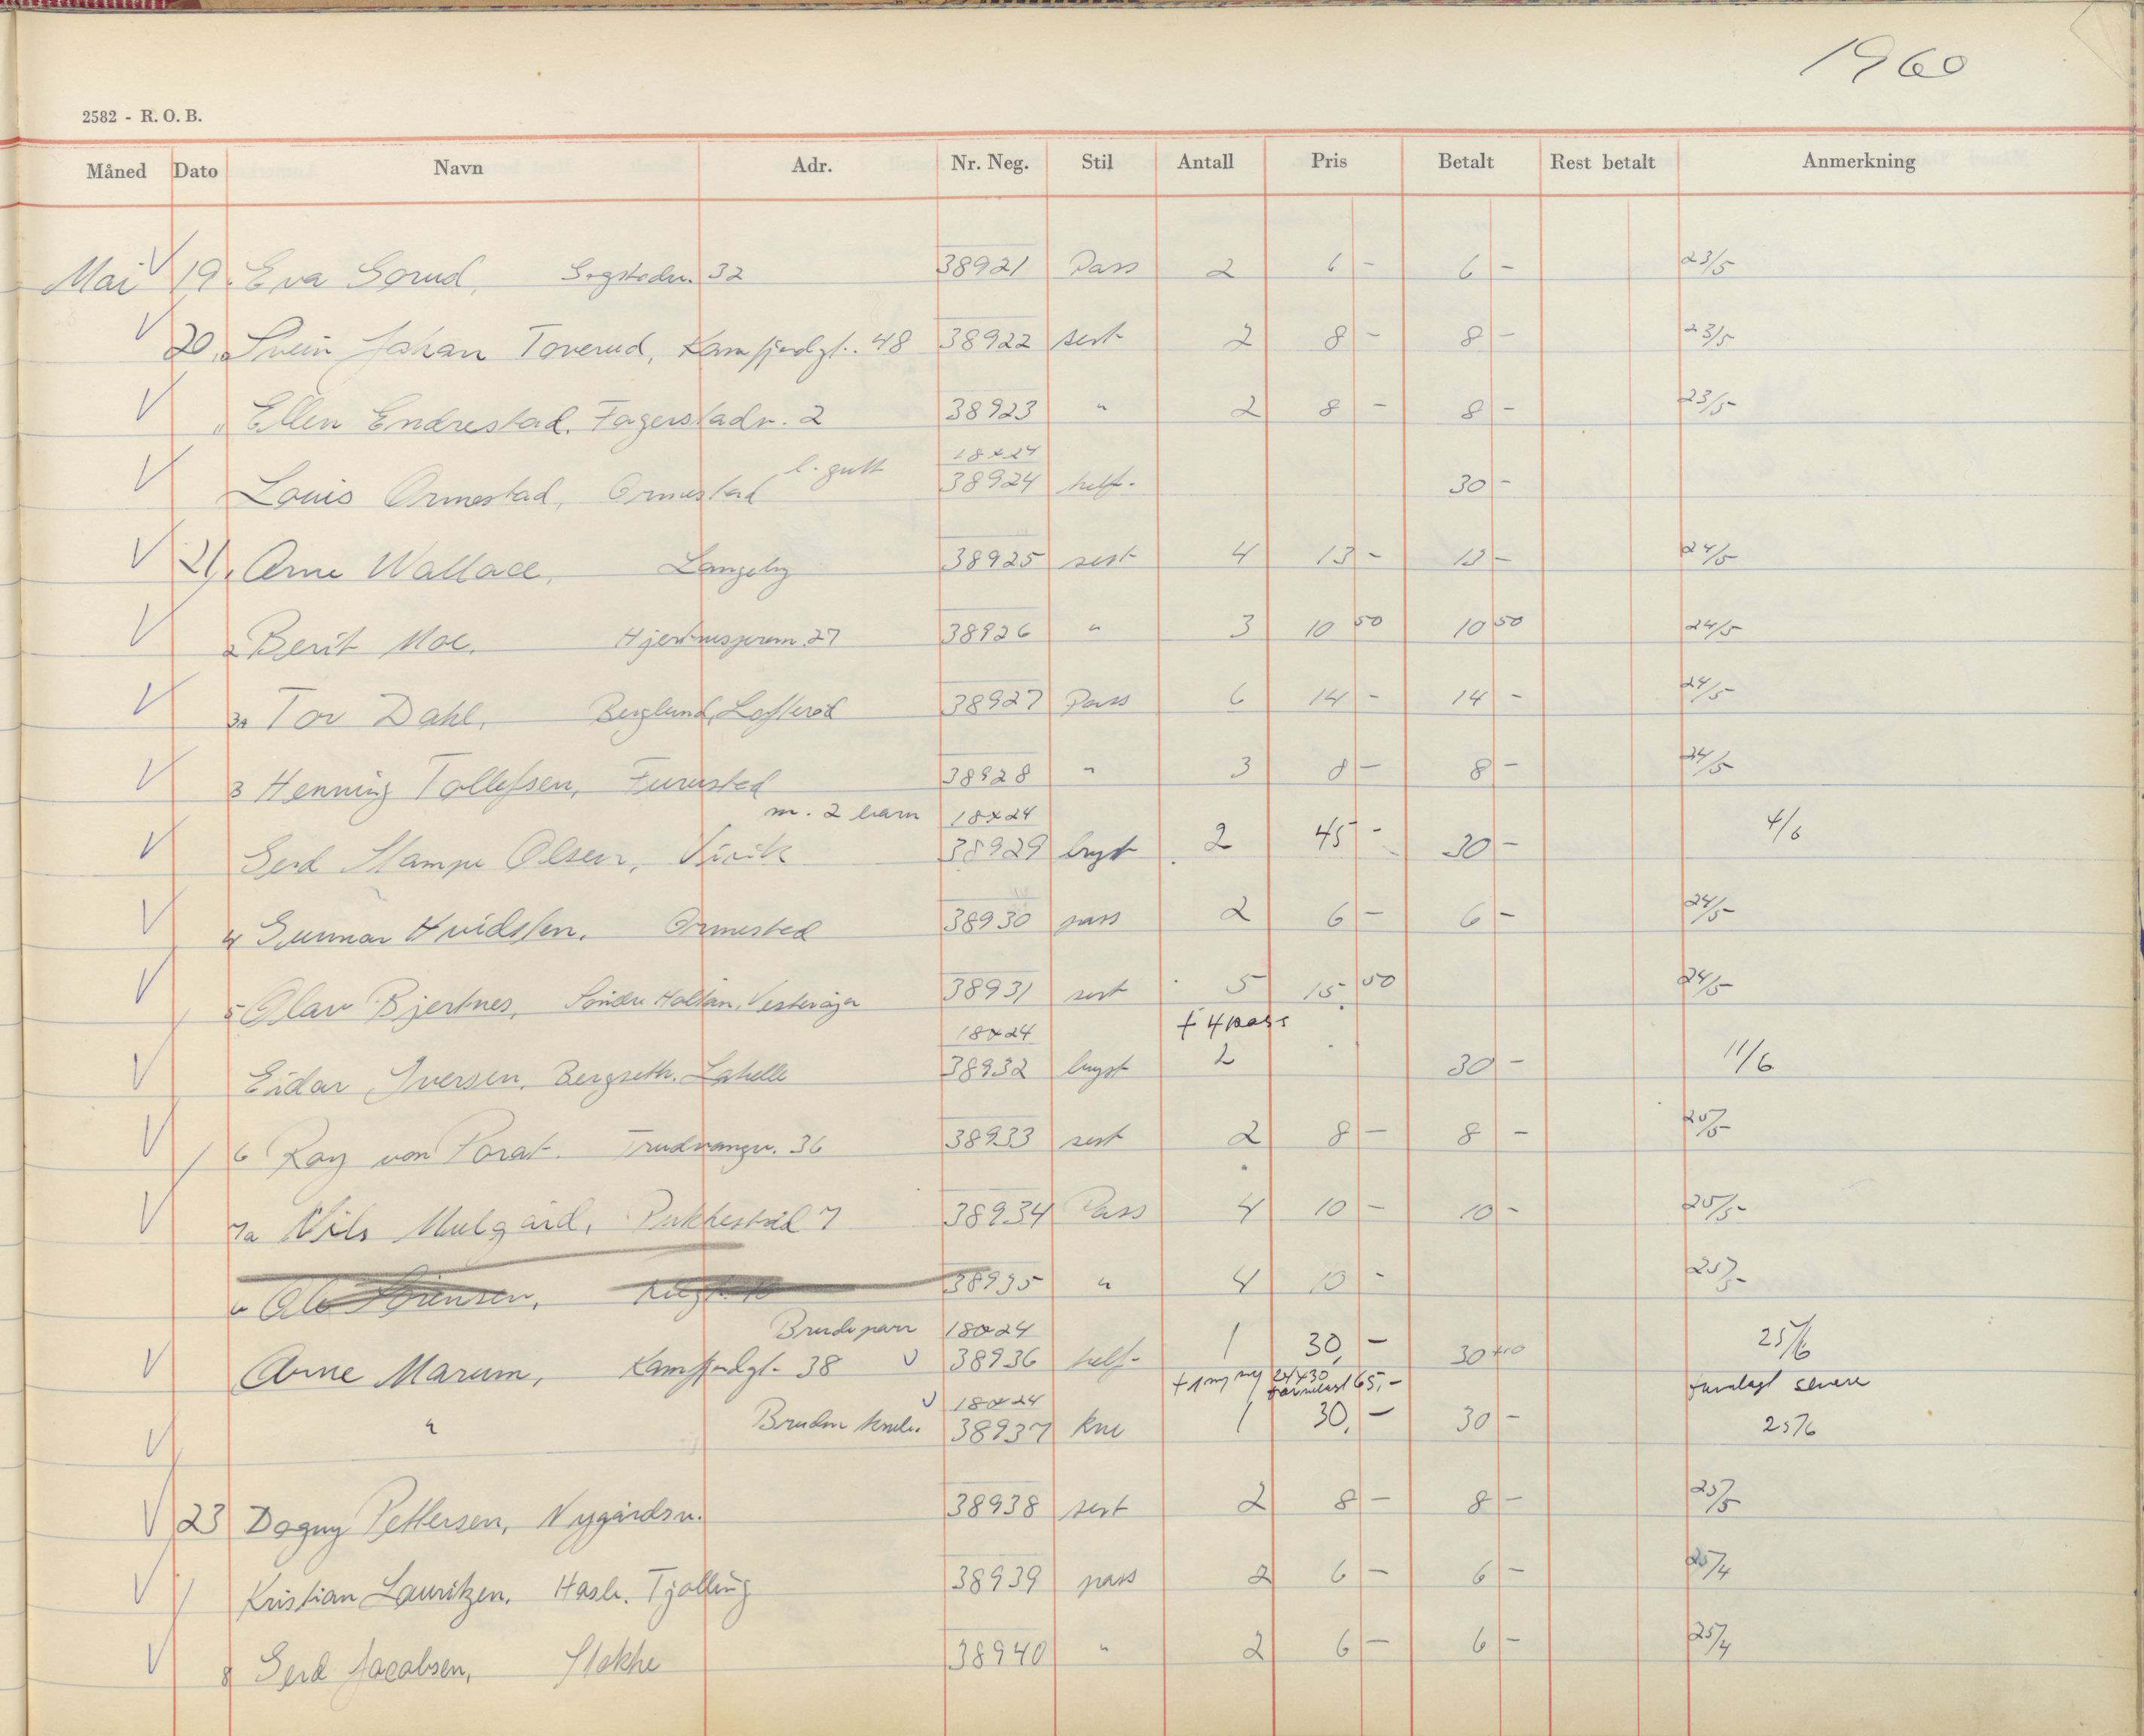 1960
2582 - R. O. B.
Måned Dato Navn Adr. Nr. Neg. Stil Antall Pris Betalt Rest betalt Anmerkning
Mai 19. Eva Sorud, 32 38921 Pass 2 6 - 6 - 23/5
20. Svein Johan Toverud, Kamfjordgt. 48 38922 sest 2 8 - 8 - 23/5
" Ellen Endrestad. Fagerstadv. 2 38923 " 2 8 - 8 - 23/5
l. gutt 18x24
Louis Ormestad, Ormestad 38924 helf. 30 -
21. Arne Wallace, Langeby 38925 sest 4 13 - 13 - 24/5
2 Berit Moe. Hjertnesprom. 27 38926 " 3 10 50 10 50 24/5
3a Tor Dahl, Berglund, Lofterød 38927 Pass 6 14 - 14 - 24/5
3 Henning Tollefsen, Furustad 38928 " 3 8 - 8 - 24/5
m. 2 barn 18x24
Gerd Stampe Olsen, Virik 38929 bryst 2 45 - 30 - 4/6
4 Gunnar Hvidsten. Ormestad 38930 pass 2 6 - 6 - 24/5
5 Olav Bjertnes, Søndre Holtan, Vesterøya 38931 sest 5 15 50 24/5
18x24 + 4 pass
Eidar Iversen, Bergseth. Lahelle 38932 bryst 2 30 - 11/6
6 Roy von Porat. Trudvangv. 36 38933 sest 2 8 - 8 - 25/5
7a Nils Mulgård, Pukkestad 7 38934 Pass 4 10 - 10 - 25/5
Sørensen, 38935 " 4 10 - 25/5
Brudepar 18x24
Arne Marum, Kamfjordgt. 38 38936 helf. 1 30, - 30 25/6
24x30 65,-
18x24 senere
" 38937 kne 1 30, - 30 - 25/6
23 Dagny Pettersen, Nygårdsv. 38938 sest 2 8 - 8 - 25/5
Kristian Lauritzen. Hasle. Tjølling 38939 pass 2 6 - 6 - 25/4
8 Gerd Jacobsen, Stokke 38940 " 2 6 - 6 - 25/4